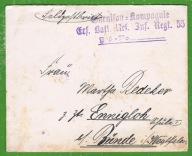 Feldpostbrief
Garnison-Kompagnie
Ers. Batl. Res. Inf. Regt. 55
Frau
Martha Redeker
z. Zt. Ennigloh
b/ Bünde i/ Westfalen